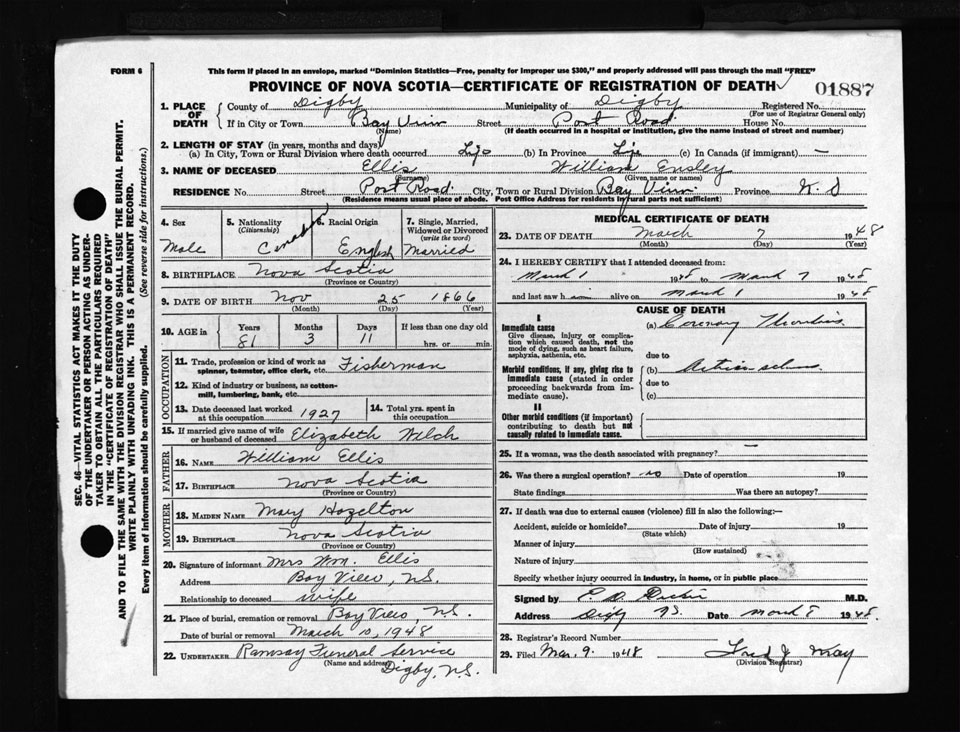 FORM 6
This form if placed in an envelope, marked "Dominion Statistics—Free, penalty for improper use $300," and properly addressed will pass through the mail "FREE"
PROVINCE OF NOVA SCOTIA—CERTIFICATE OF REGISTRATION OF DEATH
01887
1. PLACE OF DEATH
County of Digby Municipality of Digby Registered No.
(For use of Registrar General only)
If in City or Town Bay View Street Post Road House No.
(Name) (If death occurred in a hospital or institution, give the name instead of street and number)
2. LENGTH OF STAY (in years, months and days)
(a) In City, Town or Rural Division where death occurred Life (b) In Province Life (c) In Canada (if immigrant) —
3. NAME OF DECEASED Ellis William Ensley
(Surname) (Given name or names)
RESIDENCE No. Street Post Road City, Town or Rural Division Bay View Province N.S
(Residence means usual place of abode. Post Office Address for residents in rural parts not sufficient)
4. Sex
Male
5. Nationality
(Citizenship)
6. Racial Origin
English
7. Single, Married, Widowed or Divorced
(write the word)
Married
8. BIRTHPLACE Nova Scotia
(Province or Country)
9. DATE OF BIRTH Nov 25 1866
(Month) (Day) (Year)
10. AGE in Years Months Days If less than one day old
81 3 11 hrs. or min.
OCCUPATION
11. Trade, profession or kind of work as spinner, teamster, office clerk, etc. Fisherman
12. Kind of industry or business, as cotton-mill, lumbering, bank, etc.
13. Date deceased last worked at this occupation 1927
14. Total yrs. spent in this occupation
15. If married give name of wife or husband of deceased Elizabeth Wilch
FATHER
16. NAME William Ellis
17. BIRTHPLACE Nova Scotia
(Province or Country)
MOTHER
18. MAIDEN NAME Mary Hazelton
19. BIRTHPLACE Nova Scotia
(Province or Country)
20. Signature of informant Mrs Wm. Ellis
Address Bay View, N.S.
Relationship to deceased wife
21. Place of burial, cremation or removal Bay View, N.S.
Date of burial or removal March 10, 1948
22. UNDERTAKER Ramsay Funeral Service
(Name and address) Digby, N.S.
MEDICAL CERTIFICATE OF DEATH
23. DATE OF DEATH March 7 1948
(Month) (Day) (Year)
24. I HEREBY CERTIFY that I attended deceased from:
March 1 1948 to March 7 1948
and last saw him alive on March 1 1948
CAUSE OF DEATH
I
Immediate cause
Give disease, injury or complication which caused death, not the mode of dying, such as heart failure, asphyxia, asthenia, etc.
(a) Coronary Thrombosis
due to
Morbid conditions, if any, giving rise to immediate cause (stated in order proceeding backwards from immediate cause).
(b)
due to
(c)
II
Other morbid conditions (if important) contributing to death but not causally related to immediate cause.
25. If a woman, was the death associated with pregnancy? —
26. Was there a surgical operation? no Date of operation 19
State findings Was there an autopsy?
27. If death was due to external causes (violence) fill in also the following:—
Accident, suicide or homicide? Date of injury 19
(State which)
Manner of injury
(How sustained)
Nature of injury
Specify whether injury occurred in industry, in home, or in public place
Signed by M.D.
Address Digby N.S. Date March 8 1948
28. Registrar's Record Number
29. Filed Mar. 9. 1948 Fred J
(Division Registrar)
SEC. 46—VITAL STATISTICS ACT MAKES IT THE DUTY
OF THE UNDERTAKER OR PERSON ACTING AS UNDER-
TAKER TO OBTAIN ALL THE PARTICULARS REQUIRED
IN THE "CERTIFICATE OF REGISTRATION OF DEATH"
AND TO FILE THE SAME WITH THE DIVISION REGISTRAR WHO SHALL ISSUE THE BURIAL PERMIT.
WRITE PLAINLY WITH UNFADING INK. THIS IS A PERMANENT RECORD.
Every item of information should be carefully supplied. (See reverse side for instructions.)